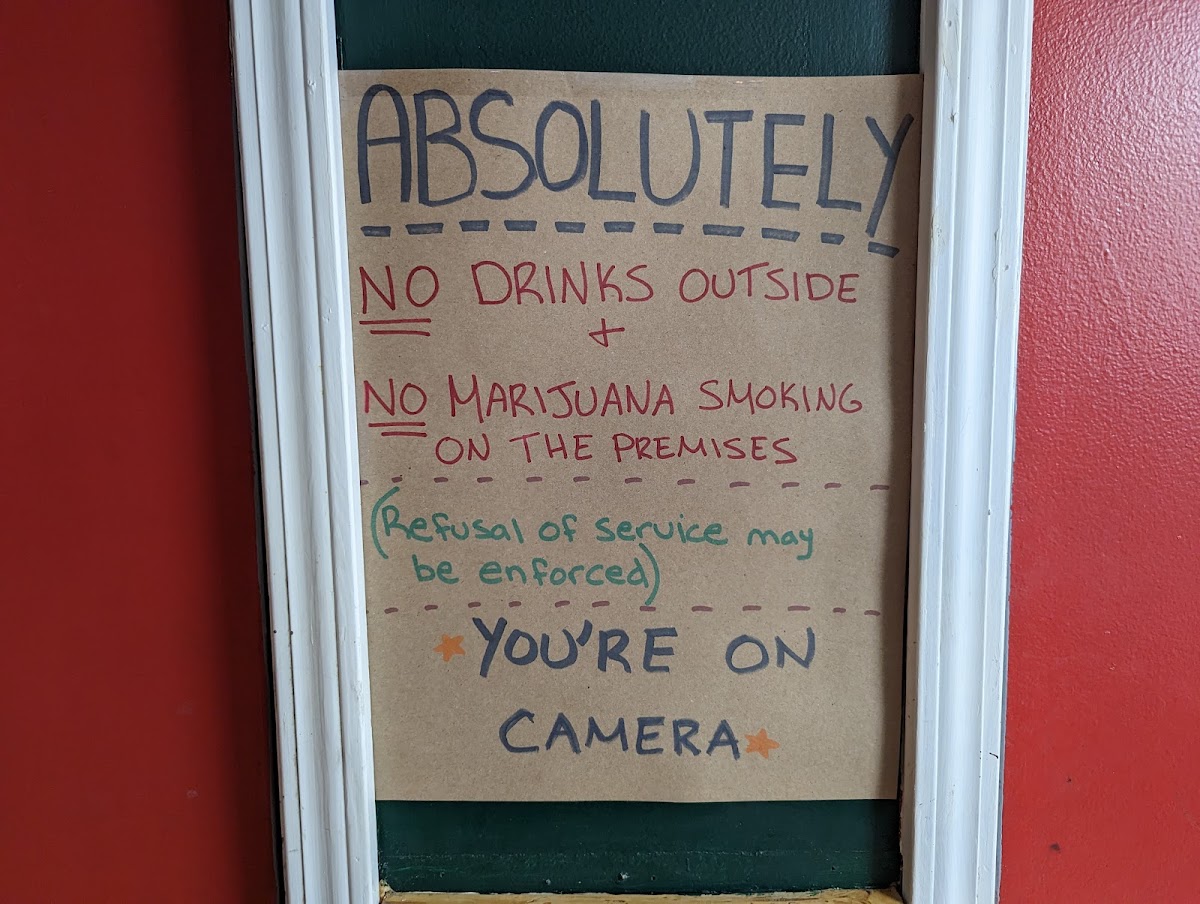 ABSOLUTELY
NO DRINKS OUTSIDE
+
NO MARIJUANA SMOKING
ON THE PREMISES
(Refusal of service may
be enforced)
YOU'RE ON
CAMERA